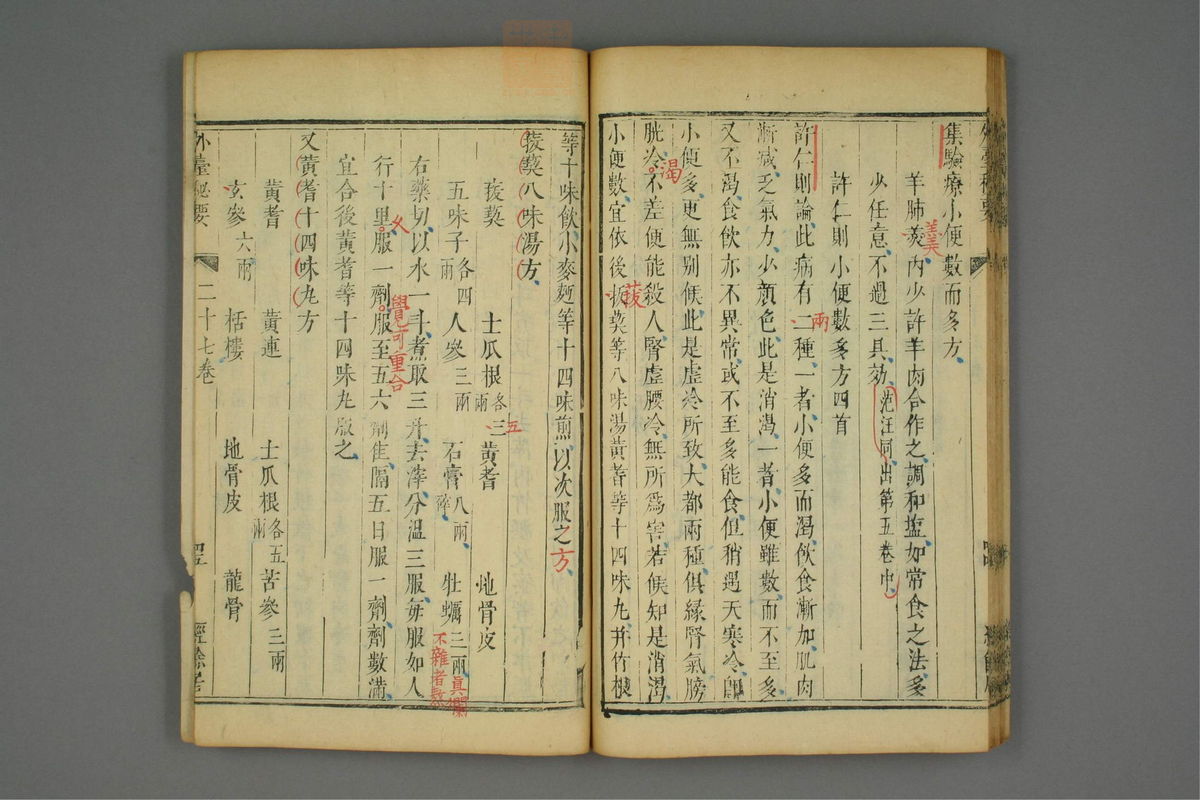 集驗療小便數而多方
羊肺羹內少許羊肉合作之調和鹽如常食之法多
羹
少任意不過三具效范汪同出第五卷中
許仁則小便數多方四首
許仁則論此病有二種一者小便多而渴飲食漸加肌肉
兩
漸減乏氣力少顏色此是消渴一者小便雖數而不至多
又不渴食飲亦不異常或不至多能食但稍遇天寒冷卽
小便多更無別候此是虛冷所致大都兩種俱緣腎氣膀
胱冷不差便能殺人腎虛腰冷無所爲害若候知是消渴
渴
小便數宜依後菝葜等八味湯黃耆等十四味丸幷竹根
菝
等十味飲小麥麪等十四味煎以次服之方
菝葜八味湯方
菝葜 土瓜根各三兩 黃耆 地骨皮
五
五味子各四兩 人參三兩 石膏八兩碎 牡蠣三兩
不雜者熬
右藥切以水一斗煮取三升去滓分溫三服每服如人
行十里服一劑服至五六劑隹隔五日服一劑劑數滿
又
覺可重合
宜合後黃耆等十四味丸服之
又黃耆十四味丸方
黃耆 黃連 土瓜根各五兩 苦參三兩
玄參六兩 栝樓 地骨皮 龍骨
外臺秘要 二十七卷